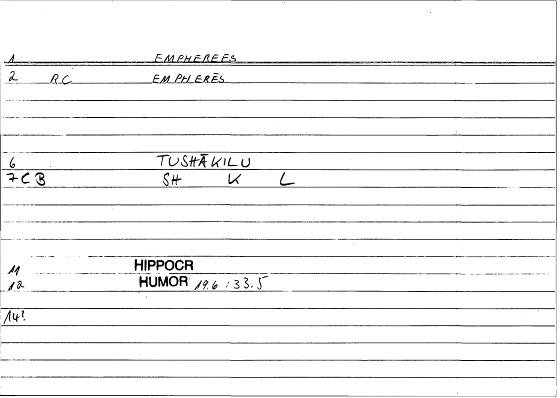 1 EMPHEREES
2 RC EMPHERĒS
6 TUSHĀKILU
7CB SH K L
11 HIPPOCR
12 HUMOR 19.6:33.5
14!